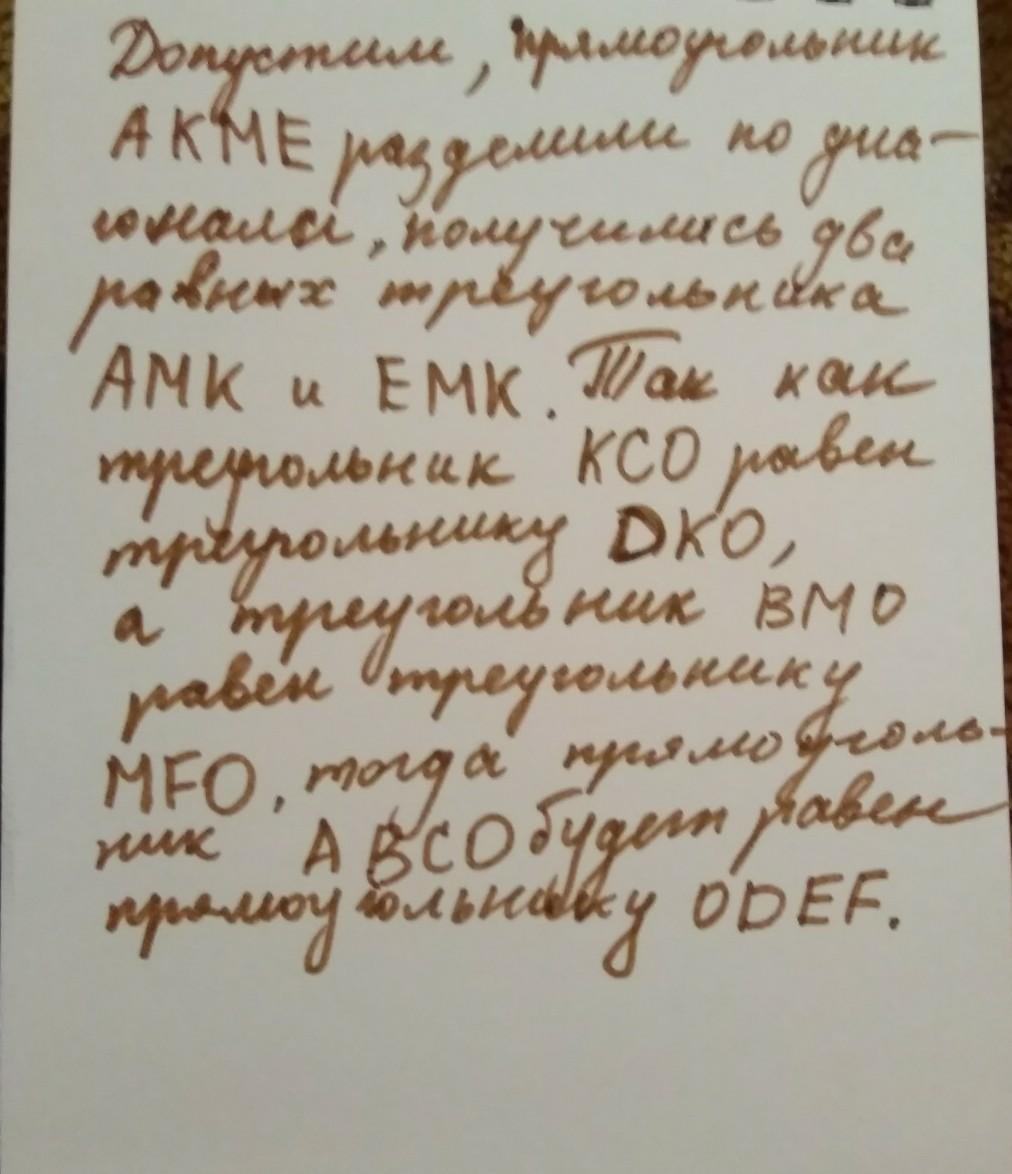 Допустим, прямоугольник
АКМЕ разделили по диа-
гонали, получились два
равных треугольника
АМК и ЕМК. Так как
треугольник КСО равен
треугольнику DКО,
а треугольник ВМО
равен треугольнику
MFO, тогда прямоуголь-
ник АВСО будет равен
прямоугольнику ODEF.